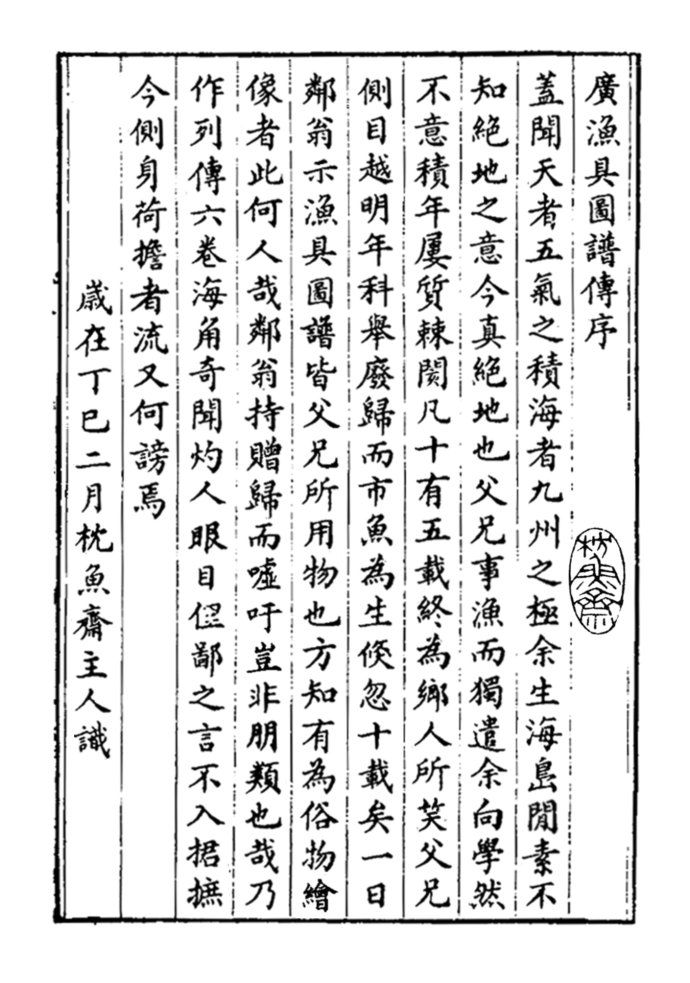 廣漁具圖譜傳序
蓋聞天者五氣之積海者九州之極余生海島閒素不
知絕地之意今真絕地也父兄事漁而獨遣余向學然
不意積年屢質棘闈凡十有五載終為鄉人所笑父兄
側目越明年科舉廢歸而市魚為生倏忽十載矣一日
鄰翁示漁具圖譜皆父兄所用物也方知有為俗物繪
像者此何人哉鄰翁持贈歸而噓吁豈非朋類也哉乃
作列傳六卷海角奇聞灼人眼目俚鄙之言不入捃摭
今側身荷擔者流又何謗焉
歲在丁巳二月枕魚齋主人識
枕魚齋